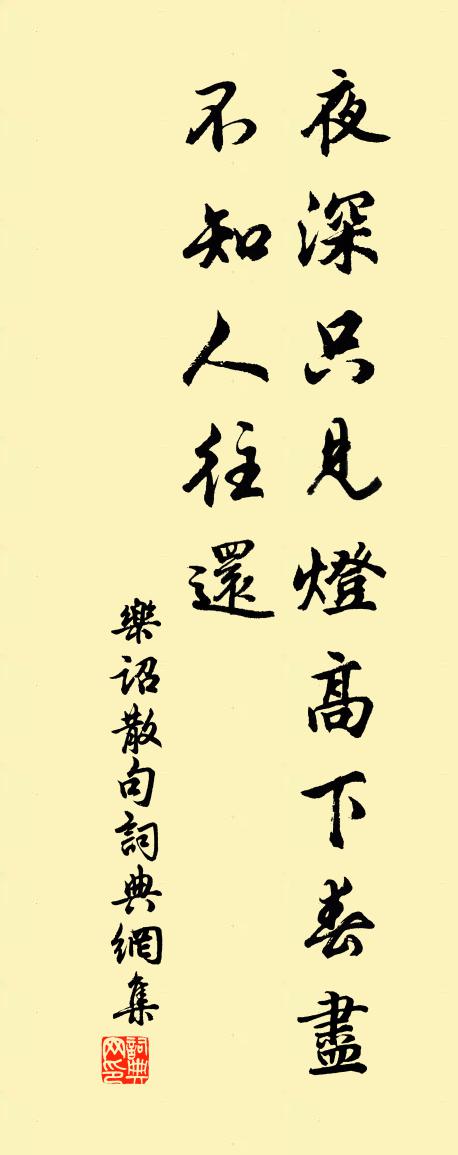 夜深只見燈高下春盡
不知人往還
樂詔散句詞典網集
詞典網印